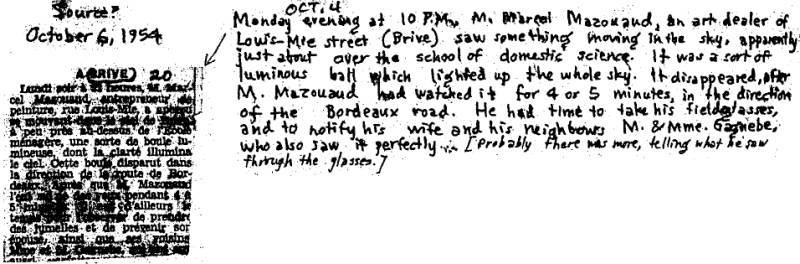 Source?
October 6, 1954
A (BRIVE) 20
Lundi soir à heures, M. Mar-
cel Mazouaud, entrepreneur de
peinture, rue Louis-Mie, a aperçu
mouvant dans le ciel de
à peu près au-dessus de l'École
ménagère, une sorte de boule lu-
mineuse, dont la clarté illumina
le ciel. Cette boule disparut dans
la direction de la route de Bor-
deaux. Après que M. Mazouaud
l'eut des yeux pendant 4 à
5 d'ailleurs le
temps de prendre
des jumelles et de prévenir son
épouse, ainsi que ses voisins
Mme et M.
OCT. 4
Monday evening at 10 P.M., M. Marcel Mazouaud, an art dealer of
Louis-Mie street (Brive) saw something moving in the sky, apparently
just about over the school of domestic science. It was a sort of
luminous ball which lighted up the whole sky. It disappeared, after
M. Mazouaud had watched it for 4 or 5 minutes, in the direction
of the Bordeaux road. He had time to take his field glasses,
and to notify his wife and his neighbours M. & Mme. Gagnebe,
who also saw it perfectly... [Probably there was more, telling what he saw
through the glasses.]